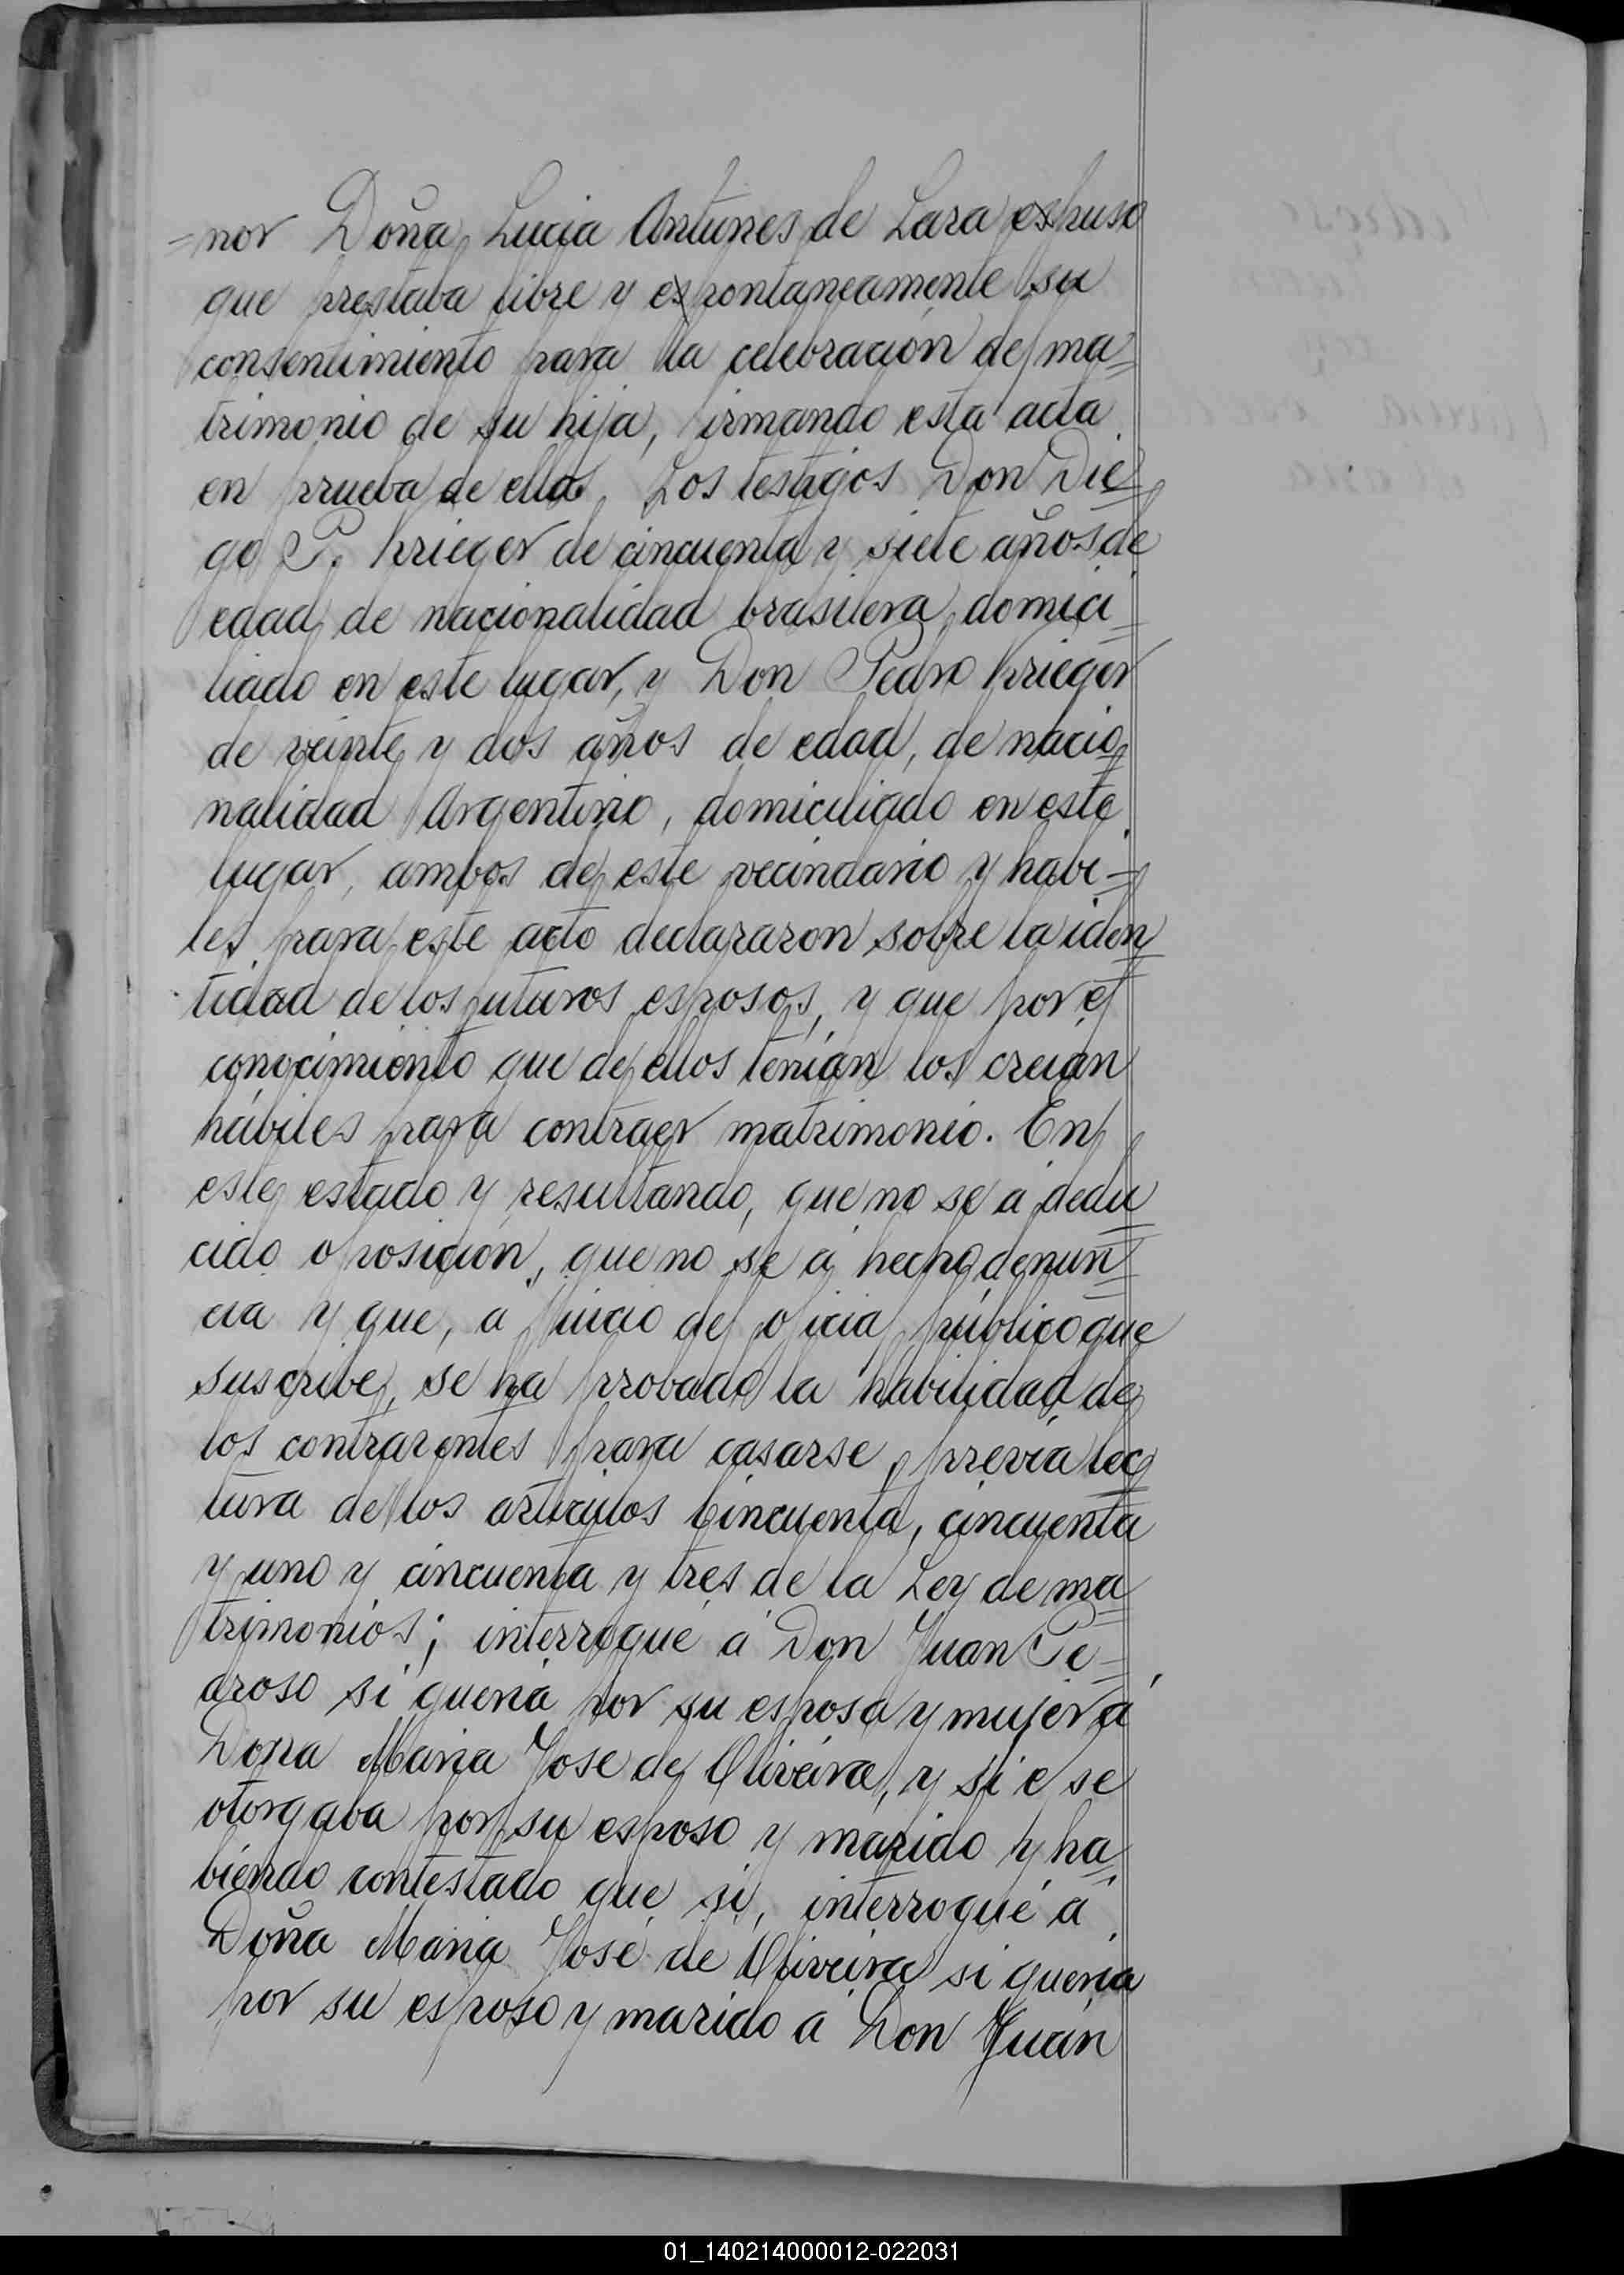 =nor Doña Lucia Antunes de Lara expuso
que prestaba libre y expontaneamente su
consentimiento para la celebración del ma=
trimonio de su hija, firmando esta acta
en prueba de ello. Los testigos Don Die=
go P. Krieger de cincuenta y siete años de
edad, de nacionalidad brasilera, domici=
liado en este lugar, y Don Pedro Krieger
de veinte y dos años de edad, de nacio=
nalidad Argentino, domiciliado en este
lugar, ambos de este vecindario y habi=
les para este acto declararon sobre la iden=
tidad de los futuros esposos, y que por el
conocimiento que de ellos tenían los creían
hábiles para contraer matrimonio. En
este estado y resultando, que no se a dedu=
cido oposición, que no se a hecho denun=
cia y que, a juicio del oficial público que
suscribe, se ha probado la habilidad de
los contrarentes para casarse, previa lec=
tura de los artículos cincuenta, cincuenta
y uno y cincuenta y tres de la Ley de ma=
trimonios; interrogué á Don Juan Pe=
droso si queria por su esposa y mujer á
Dona Maria Jose de Oliveira, y si él se
otorgaba por su esposo y marido y ha=
biendo contestado que si, interrogué á
Doña Maria José de Oliveira si queria
por su esposo y marido á Don Juan
01_140214000012-022031